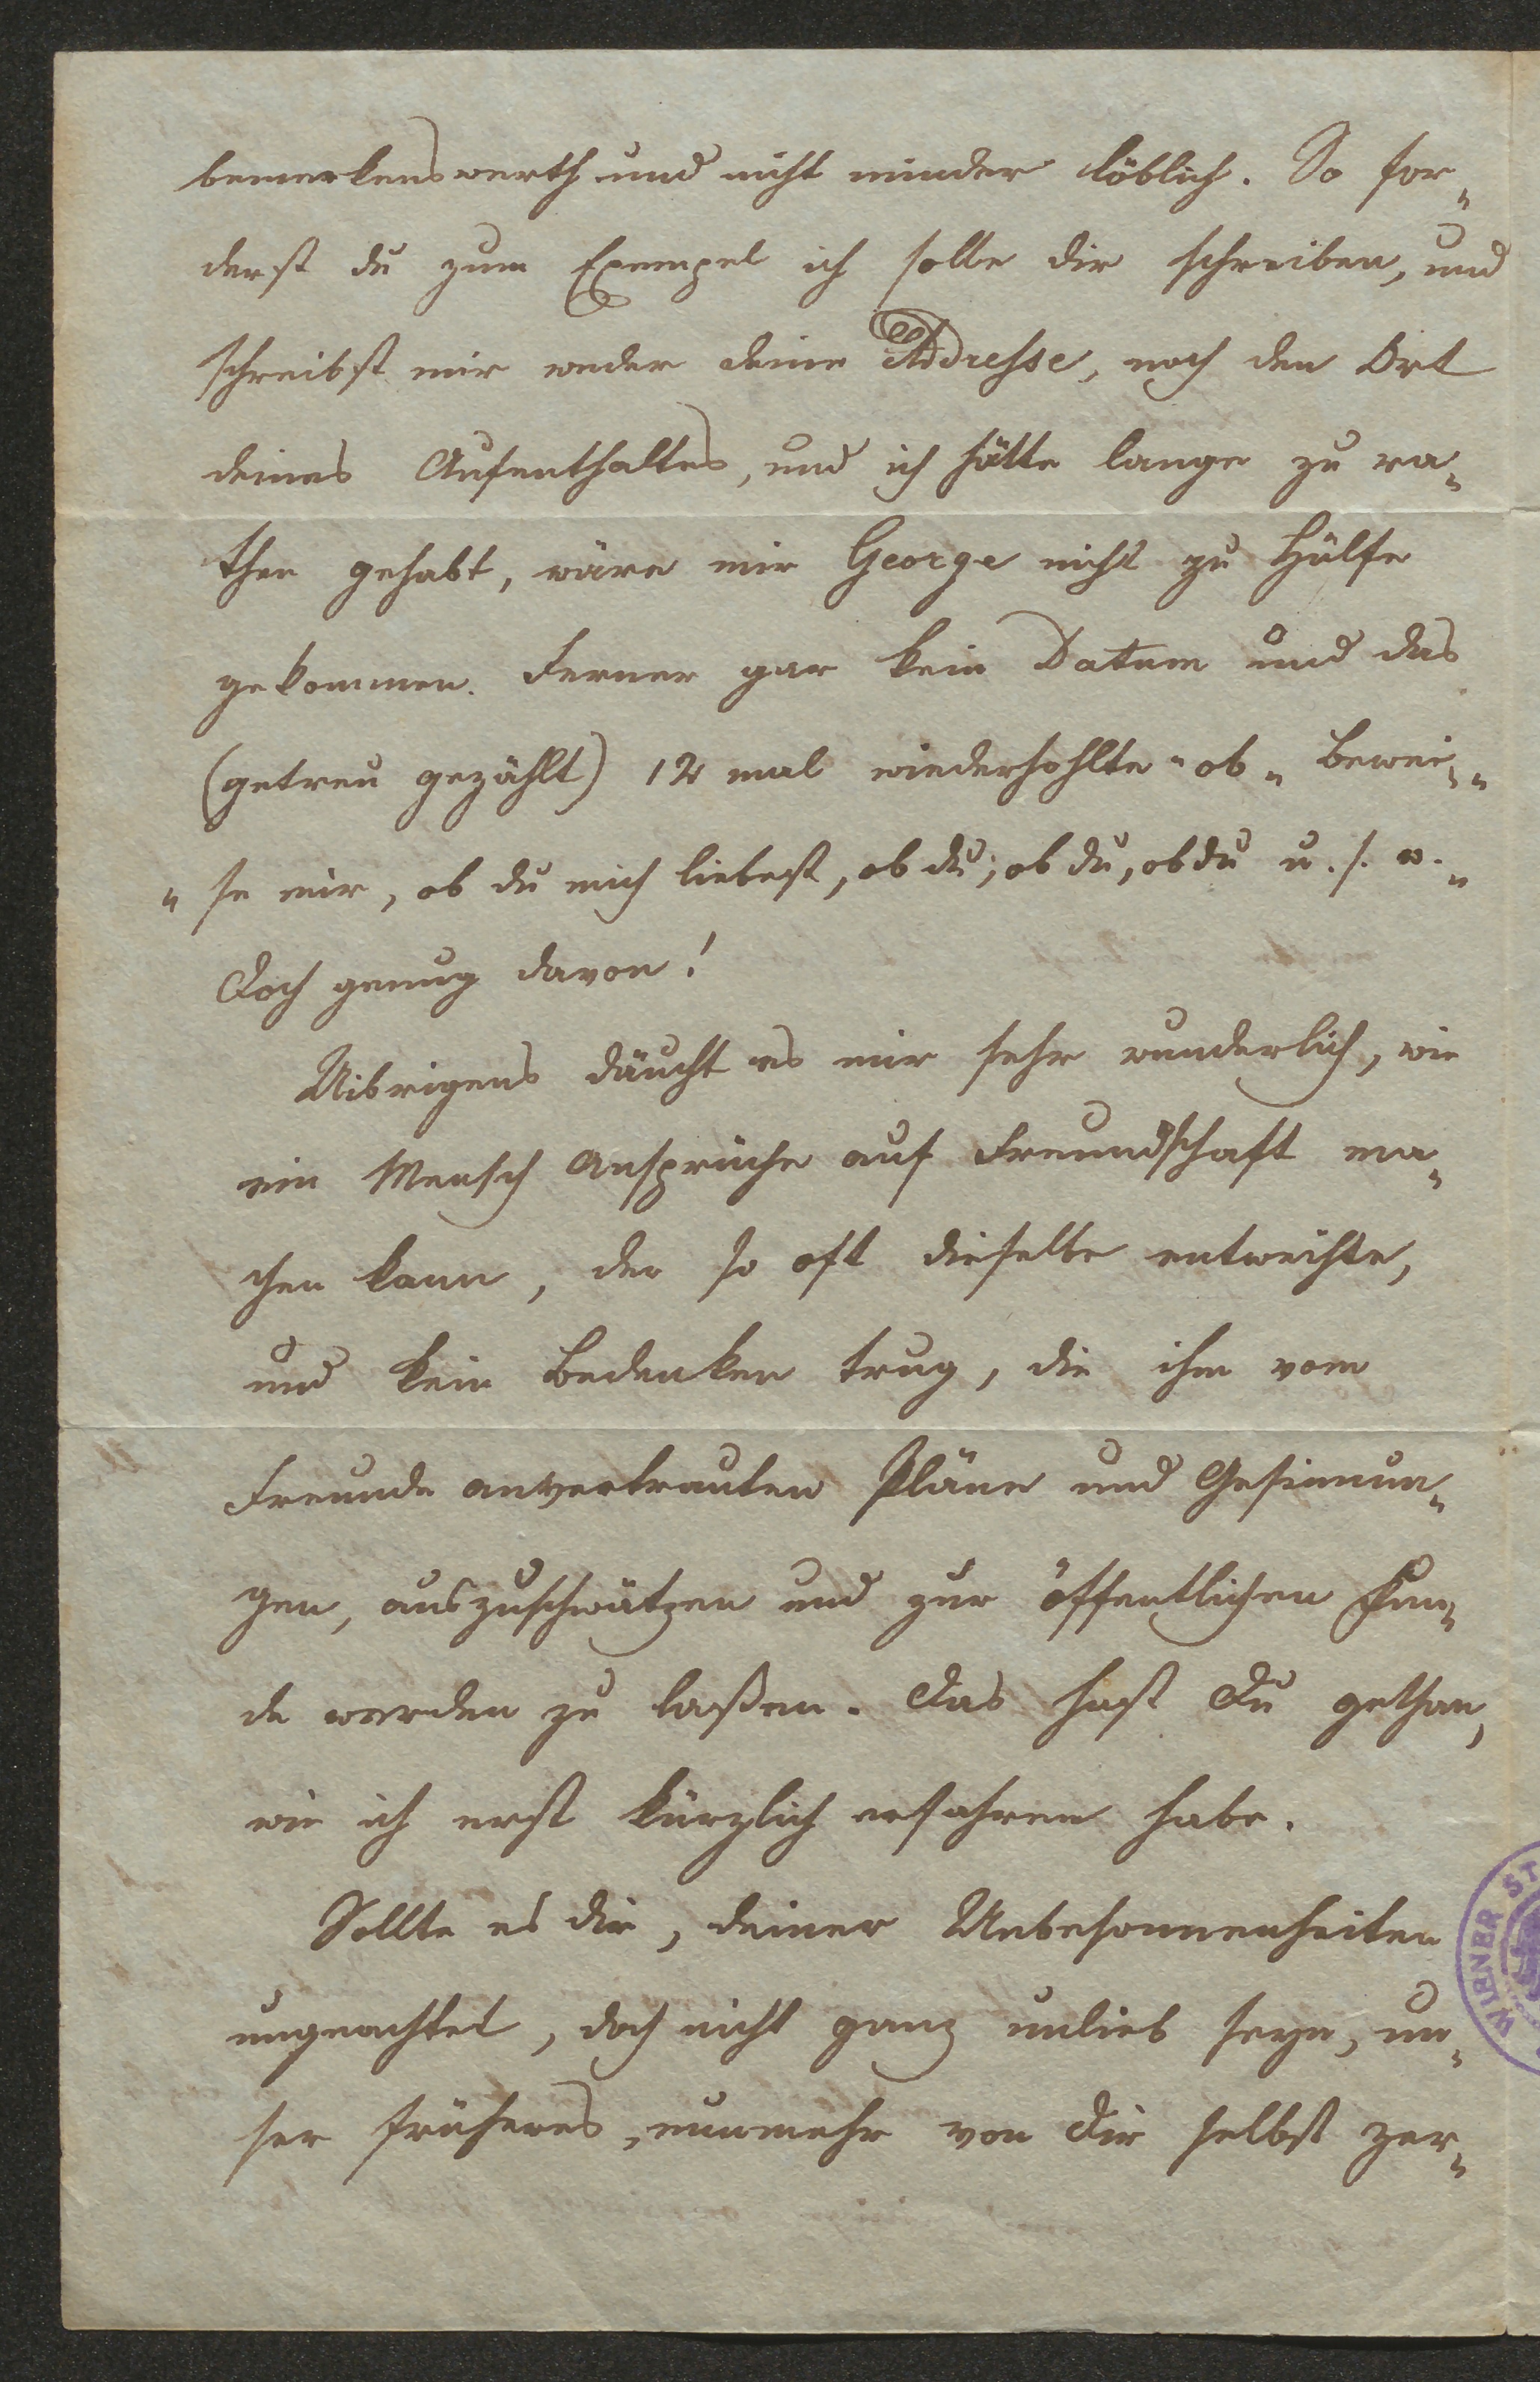 bemerkenswerth und nicht minder löblich. So for„
derst du zum Exempel ich solle dir schreiben, und
schreibst mir weder deine Addresse, noch den Ort
deines Aufenthaltes, und ich hätte lange zu ra„
then gehabt, wäre mir George nicht zu Hülfe
gekommen. Ferner gar kein Datum und das
(getreu gezählt) 12 mal wiederhohlte „ob„ Bewei„„
„se mir, ob du mich liebest, ob du; ob du, ob du u. s. w.„
Doch genug davon!
Uibrigens däucht es mir sehr wunderlich, wie
ein Mensch Ansprüche auf Freundschaft ma„
chen kann, der so oft dieselbe entweihte,
und kein Bedenken trug, die ihm vom
Freunde anvertrauten Pläne und Gesinnun„
gen, auszuschwätzen und zur öffentlichen Kun„
de werden zu laßen. Das hast Du gethan,
wie ich erst kürzlich erfahren habe.
Sollte es dir, deiner Unbesonnenheiten
ungeachtet, doch nicht ganz unlieb seyn, un„
ser früheres, nunmehr von dir selbst zer„
WIENER ST